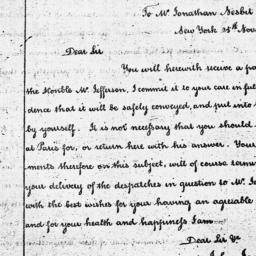 To Mr. Jonathan Nesbit
New York 25th Nov
Dear Sir
You will herewith receive a pa
the Honble Mr. Jefferson, I commit it to your care in ful
dence that it will be safely conveyed, and put into
by yourself. It is not necessary that you should
at Paris for, or return here with his answer. Your
ments therefore on this subject, will of course termi
your delivery of the despatches in question to Mr. Je
with the best wishes for your having an agreeable
and for your health and happiness I am
Dear Sir &c